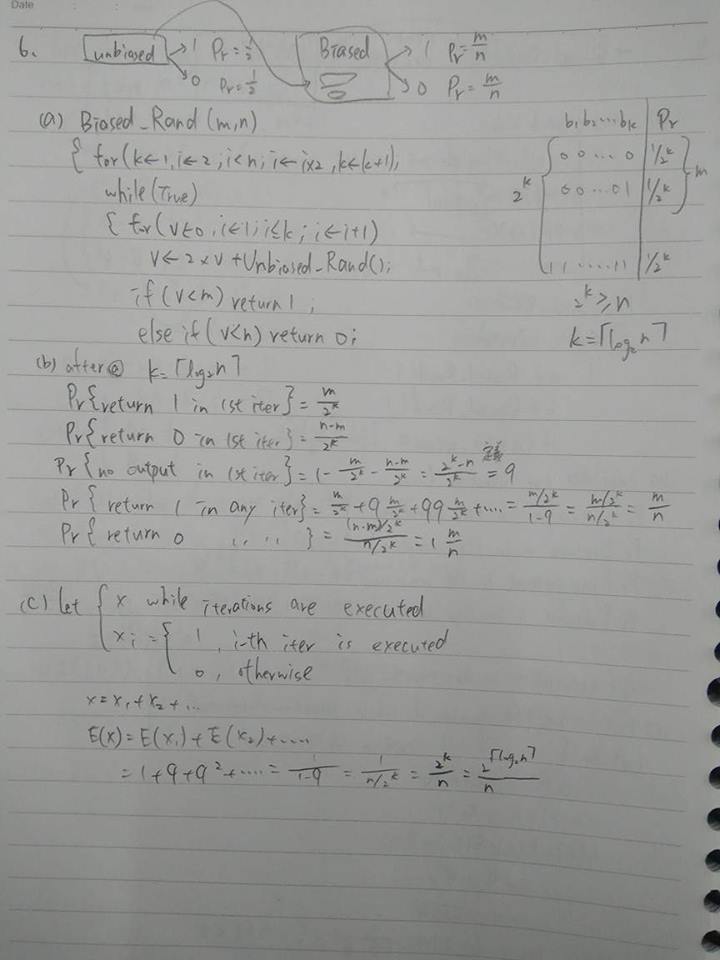 Date
6. unbiased → 1 Pr = 1/2 Biased → 1 Pr = m/n
→ 0 Pr = 1/2 → 0 Pr = m/n
(a) Biased_Rand (m,n)
{ for(k←1, i←2; i<n; i←i×2, k←k+1);
while(True)
{ for(v←0, i←1; i≤k; i←i+1)
v←2×v+Unbiased_Rand();
if(v<m) return 1;
else if(v<n) return 0;
b₁b₂…bₖ Pr
0 0 … 0 1/2^k
2^k 0 0 … 0 1 1/2^k m
1 1 …… 1 1 1/2^k
2^k ≥ n
k=⌈log₂n⌉
(b) after@ k=⌈log₂n⌉
Pr{return 1 in 1st iter} = m/2^k
Pr{return 0 in 1st iter} = n-m/2^k
Pr{no output in 1st iter} = 1 - m/2^k - n-m/2^k = 2^k-n/2^k 定義= q
Pr{return 1 in any iter} = m/2^k + q m/2^k + qq m/2^k + …… = m/2^k/1-q = m/2^k/n/2^k = m/n
Pr{return 0 〃 〃} = (n-m)/2^k/n/2^k = 1 m/n
(c) let { x while iterations are executed
xi = { 1, i-th iter is executed
0, otherwise
x = x₁ + x₂ + …
E(x) = E(x₁) + E(x₂) + ……
= 1 + q + q² + …… = 1/1-q = 1/n/2^k = 2^k/n = 2^⌈log₂n⌉/n